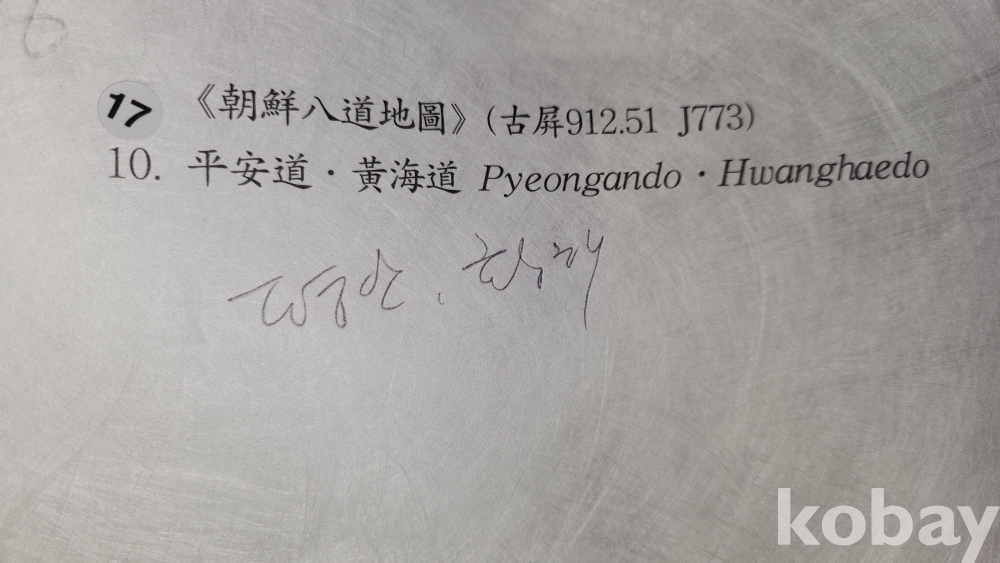 17 《朝鮮八道地圖》(古屛912.51 J773)
10. 平安道 · 黃海道 Pyeongando · Hwanghaedo
평안 . 황해
kobay